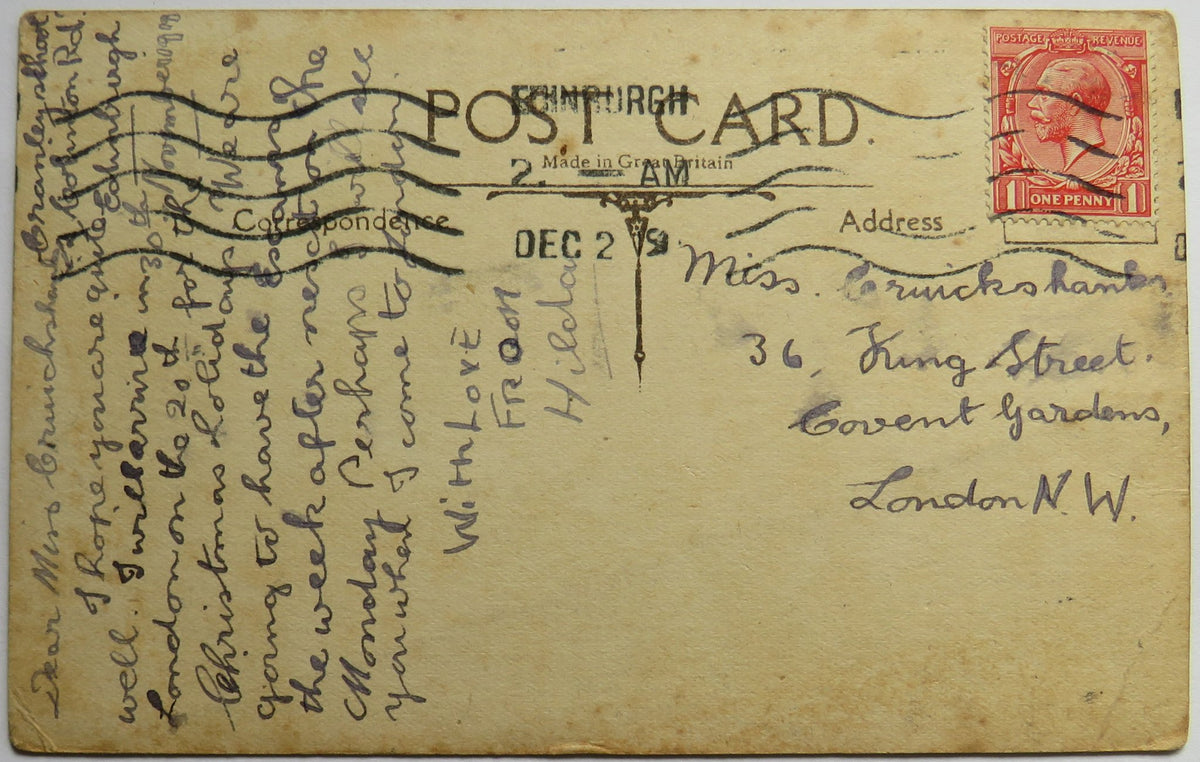 POST CARD.
Made in Great Britain
Correspondence
Address
EDINBURGH
AM
DEC 2 9
POSTAGE REVENUE
1 ONE PENNY 1
Colinton Rd.
Edinburgh
30th November 19
Dear Miss Cruickshank
I hope you are quite
well. I will arrive in
London on the 20th for the
Christmas holidays We are
going to have the Exams
the week after next on the
Monday Perhaps I will see
you when I come to London.
With Love
From
Hilda
Miss. Cruickshank.
36, King Street.
Covent Gardens,
London N.W.